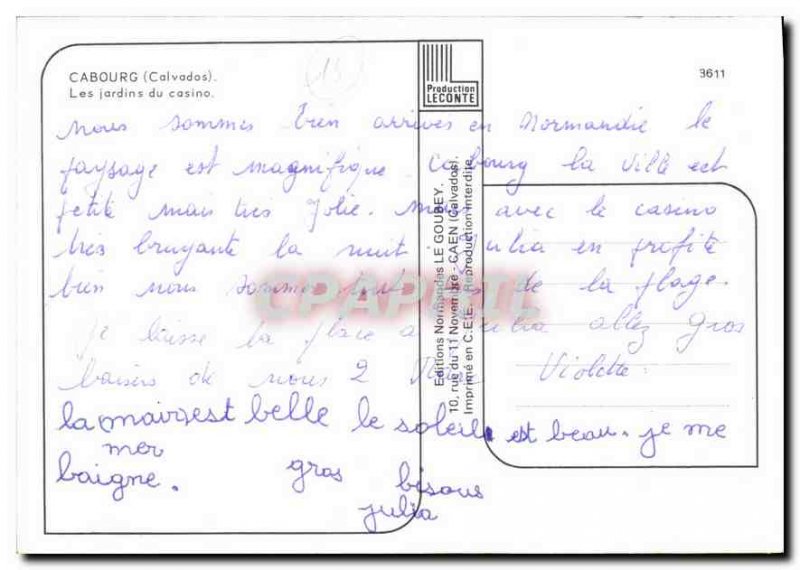 CABOURG (Calvados).
Les jardins du casino.
Production
LECONTE
3611
13
nous sommes bien arrivés en Normandie le
paysage est magnifique. Cabourg la ville est
petite mais très jolie. mais avec le casino
très bruyante la nuit. Julia en profite
bien nous sommes de la plage.
je laisse la place a Julia allez gros
baisers de nous 2 Violette
la mairest belle le soleil est beau. je me
mer
baigne. gros bisous
julia
Editions Normandes LE GOUBEY.
10, rue du 11 Novembre - CAEN (Calvados).
Imprimé en C.E.E. Reproduction interdite
CPAPHIL